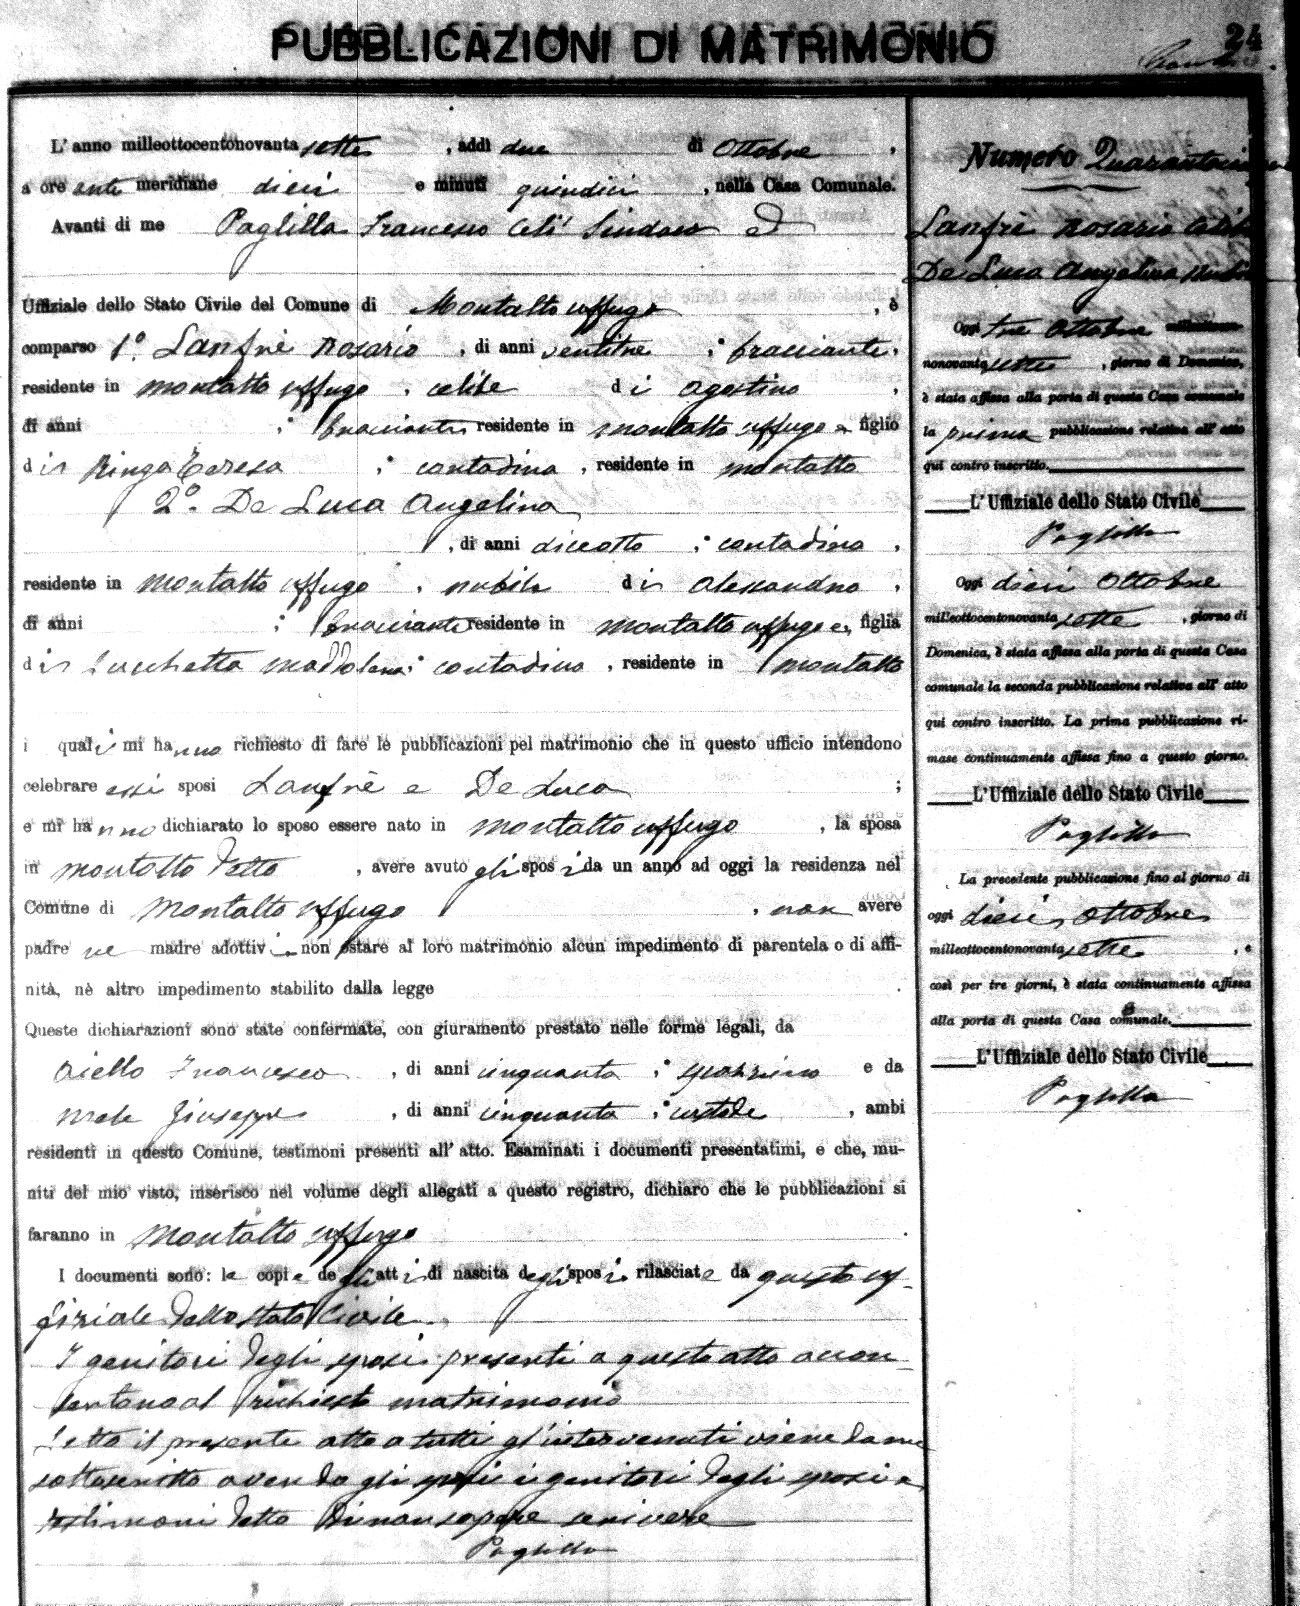 PUBBLICAZIONI DI MATRIMONIO
24
L'anno milleottocentonovanta sette, addì due di Ottobre,
a ore anti meridiane dieci e minuti quindici, nella Casa Comunale.
Avanti di me Paglilla Francesco Sindaco ed
Uffiziale dello Stato Civile del Comune di Montalto uffugo, è
comparso 1º. Lanfrè Rosario, di anni ventitre; bracciante,
residente in Montalto uffugo, celibe di Agostino,
di anni ; bracciante residente in Montalto uffugo e figlio
di Ringa Teresa; contadina, residente in Montalto
2º. De Luca Angelina
, di anni diciotto; contadina,
residente in Montalto uffugo, nubile di Alessandro,
di anni ; bracciante residente in Montalto uffugo e, figlia
di Maddalena; contadina, residente in Montalto
i quali mi hanno richiesto di fare le pubblicazioni pel matrimonio che in questo ufficio intendono
celebrare essi sposi Lanfrè e De Luca ;
e mi hanno dichiarato lo sposo essere nato in Montalto uffugo, la sposa
in Montalto detto, avere avuto gli sposi da un anno ad oggi la residenza nel
Comune di Montalto uffugo, non avere
padre ne madre adottivi non ostare al loro matrimonio alcun impedimento di parentela o di affi-
nità, nè altro impedimento stabilito dalla legge.
Queste dichiarazioni sono state confermate, con giuramento prestato nelle forme legali, da
Aiello Francesco, di anni cinquanta; spazzino e da
Mele Giuseppe, di anni cinquanta; custode, ambi
residenti in questo Comune, testimoni presenti all'atto. Esaminati i documenti presentatimi, e che, mu-
niti del mio visto, inserisco nel volume degli allegati a questo registro, dichiaro che le pubblicazioni si
faranno in Montalto uffugo.
I documenti sono: le copie degli atti di nascita degli sposi rilasciate da questo uf-
fiziale dello stato Civile.
I genitori degli sposi presenti a questo atto accon-
sentono al richiesto matrimonio
Letto il presente atto a tutti gl'intervenuti viene da me
sottoscritto avendo gli sposi i genitori degli sposi e
testimoni detto di non sapere scrivere
Paglilla
Numero Quarantacinque
Lanfrè Rosario celibe
De Luca Angelina nubile
Oggi tre Ottobre milleottocento-
novantasette, giorno di Domenica,
è stata affissa alla porta di questa Casa comunale
la prima pubblicazione relativa all'atto
qui contro inscritto.
L'Uffiziale dello Stato Civile
Paglilla
Oggi dieci Ottobre
milleottocentonovantasette, giorno di
Domenica, è stata affissa alla porta di questa Casa
comunale la seconda pubblicazione relativa all'atto
qui contro inscritto. La prima pubblicazione ri-
mase continuamente affissa fino a questo giorno.
L'Uffiziale dello Stato Civile
Paglilla
La precedente pubblicazione fino al giorno di
oggi dieci Ottobre
milleottocentonovantasette, e
così per tre giorni, è stata continuamente affissa
alla porta di questa Casa comunale.
L'Uffiziale dello Stato Civile
Paglilla